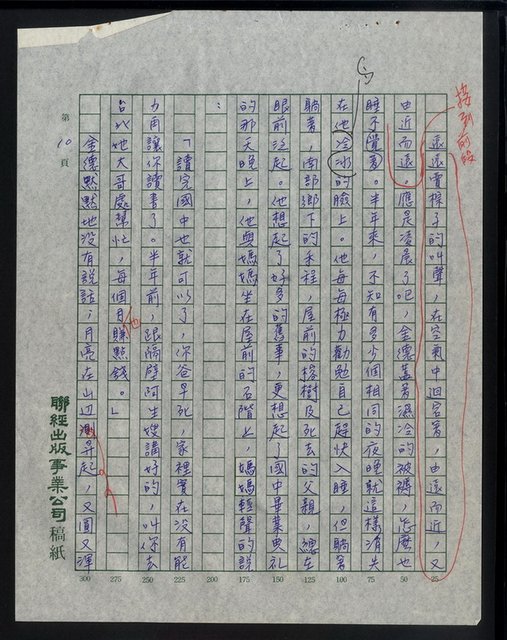 接到前段
遠遠賣粽子的叫聲，在空氣中迴宕著，由遠而近，又
由近而遠，應是凌晨了吧，金德蓋著濕冷的被褥，怎麼也
睡不著。半年來，不知有多少個相同的夜晚就這樣消失
在他冷冰的臉上。他每每極力勸勉自己趕快入睡，但躺著
躺著，南部鄉下的禾程，屋前的椽樹及死去的父親，總在
眼前泛起。他想起了好多的舊事，更想起了國中畢業典礼
的那天晚上，他與媽媽坐在屋前的石階上，媽媽輕聲的說
：
「讀完國中也就可以了，你爸早死，家裡實在沒有能
力再讓你讀書了。半年前，跟隔壁阿生嫂講好的，叫你去
台北她大哥處幫忙，每個月也賺點錢。」
金德默默地沒有說話，月亮在山边昇起，又圓又渾
第 10 頁
25
50
75
100
125
150
175
200
225
250
275
300
聯經出版事業公司稿紙